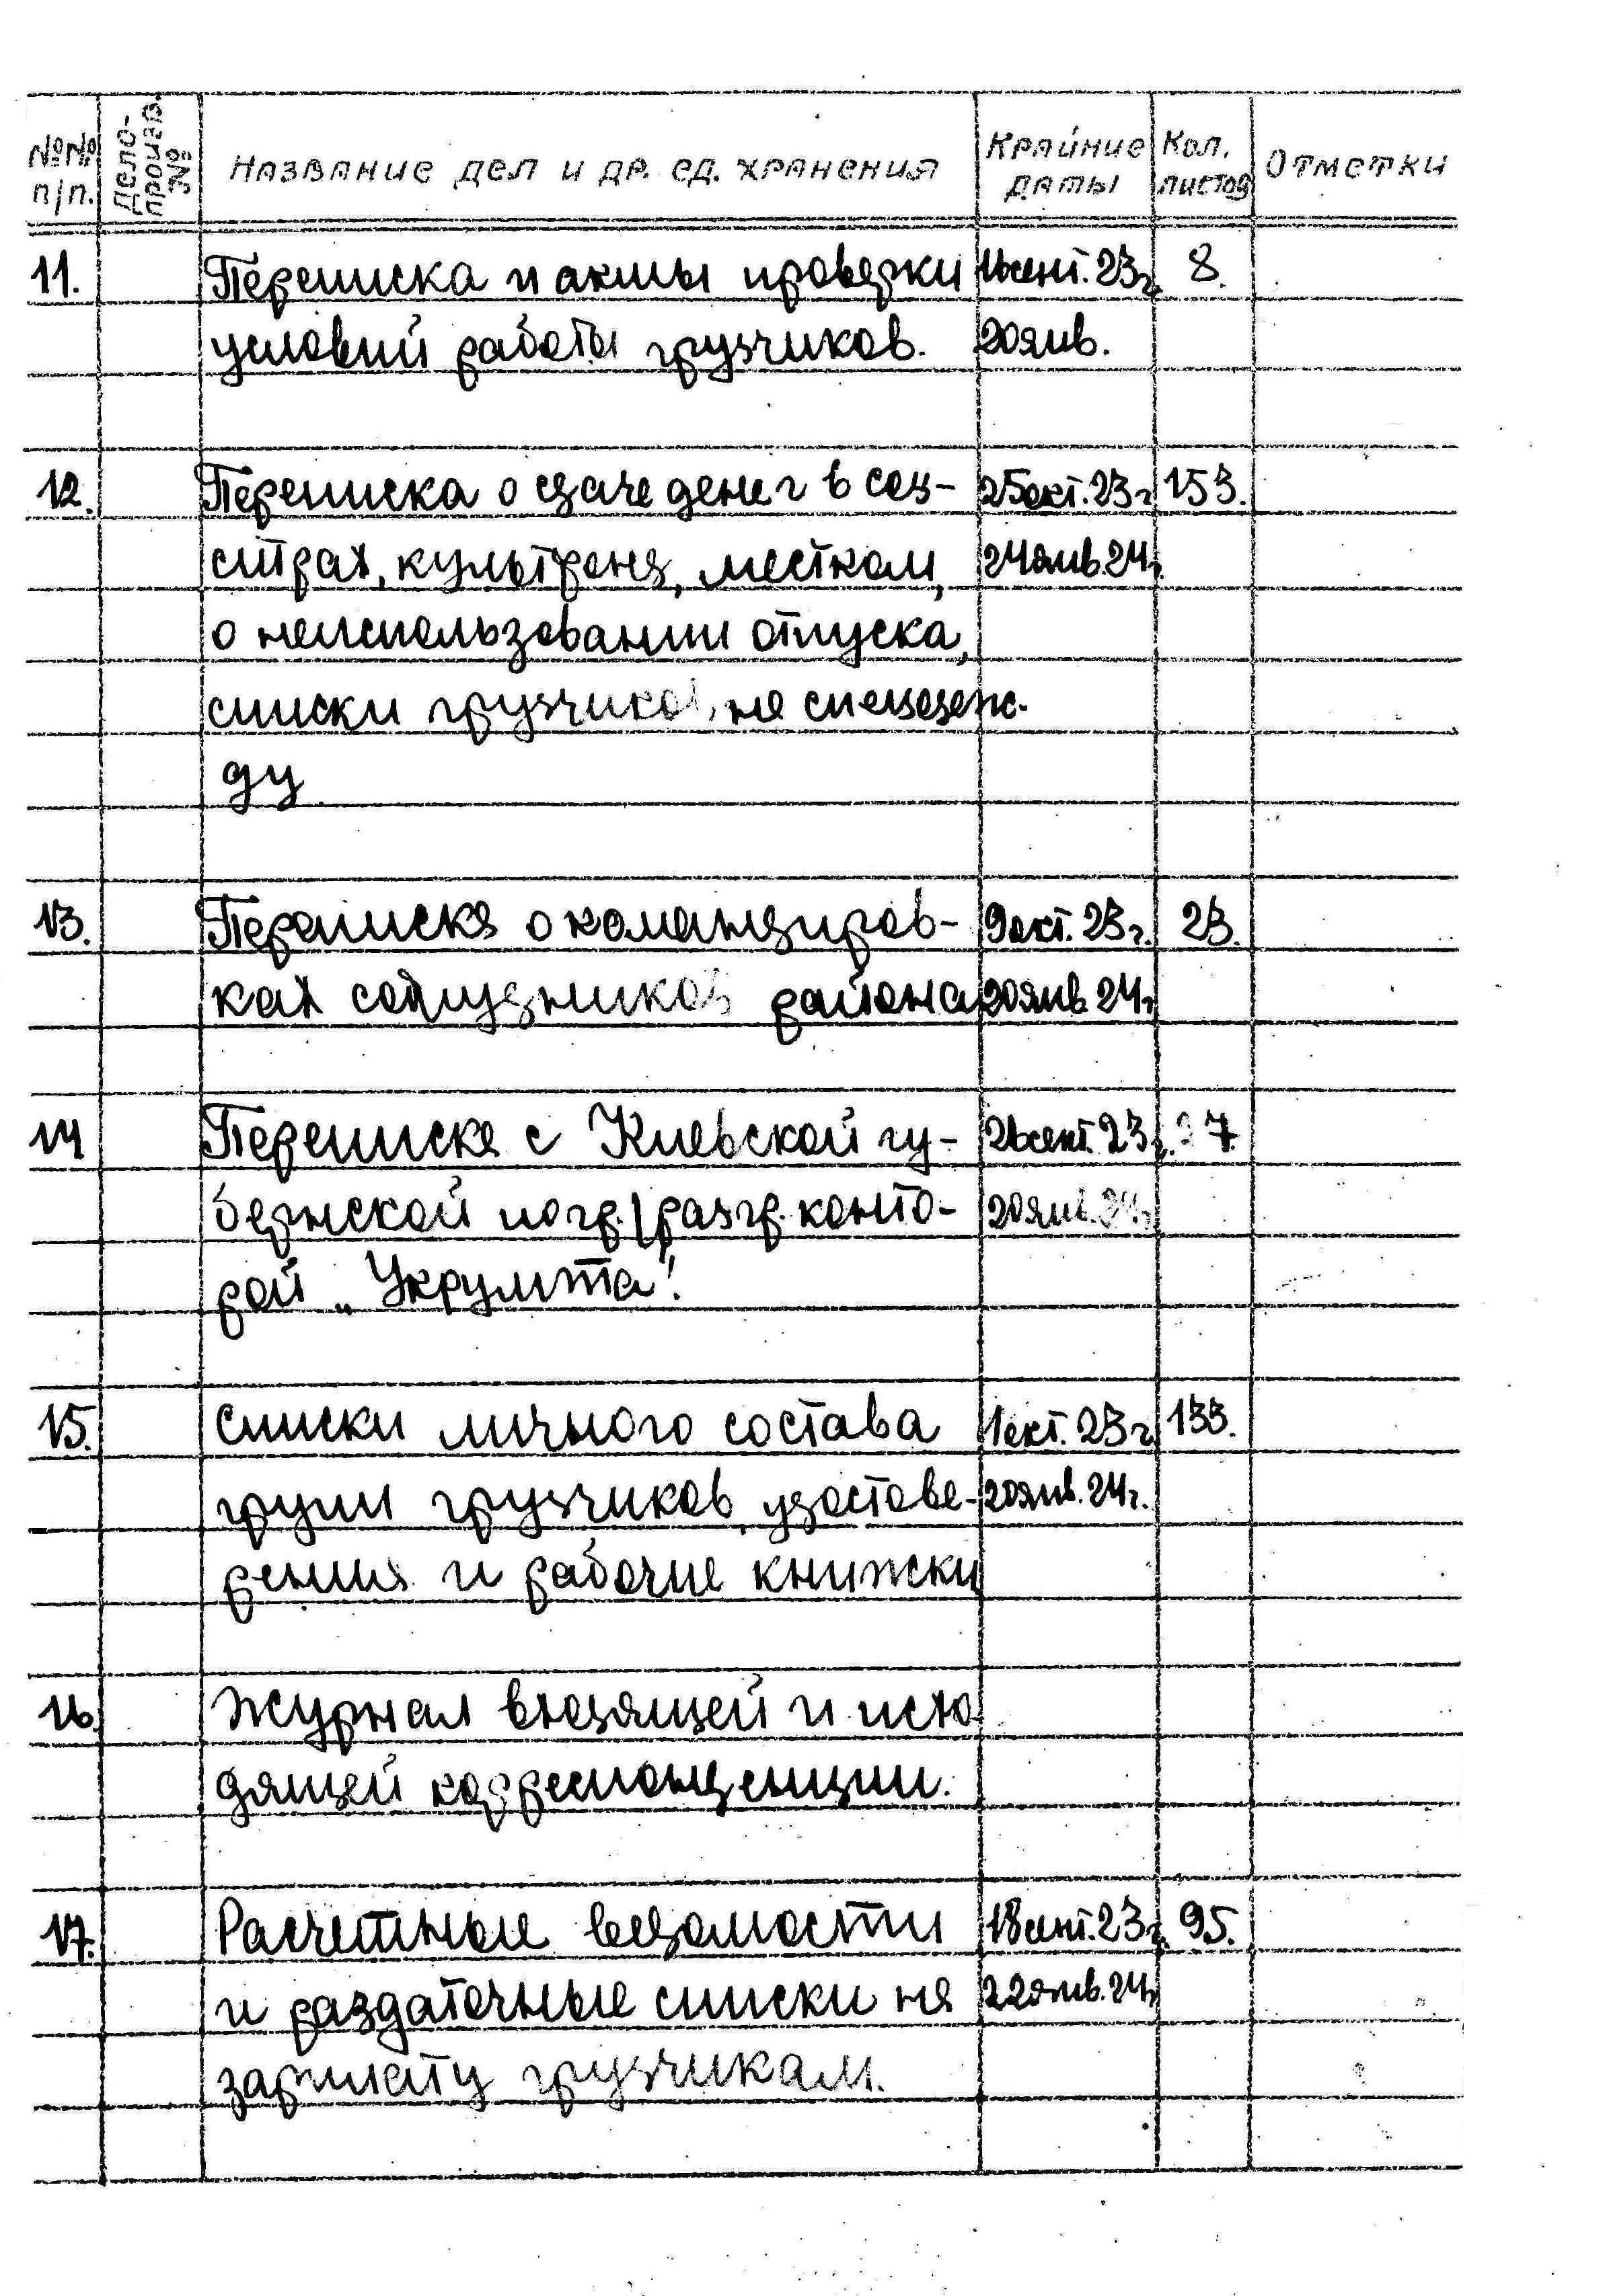 №№ п/п. Делопроизв. № Название дел и др. ед. хранения Крайние даты Кол. листов Отметки
11. Переписка и акты проверки 16сент. 23г. 8.
условий работы грузчиков. 20янв.
12. Переписка о сдаче денег в соц- 25окт. 23г 153.
страх, культфонд, местком, 24янв. 24г.
о неиспользовании отпуска,
списки грузчиков, на спецодеж-
ду
13. Переписка о командиров- 9окт. 23г. 23.
ках сотрудников района 20янв. 24г
14 Переписка с Киевской гу- 26сент. 23г. 37.
бернской погр./разгр. конто-
рой „Укрумта". 20янв. 24г.
15. Списки личного состава 1окт. 23г 133.
групп грузчиков, удостове- 20янв. 24г.
рения и рабочие книжки
16. Журнал входящей и исхо
дящей корреспонденции.
17. Расчетные ведомости 18сент. 23г. 95.
и раздаточные списки на 22янв. 24г
зарплату грузчикам.